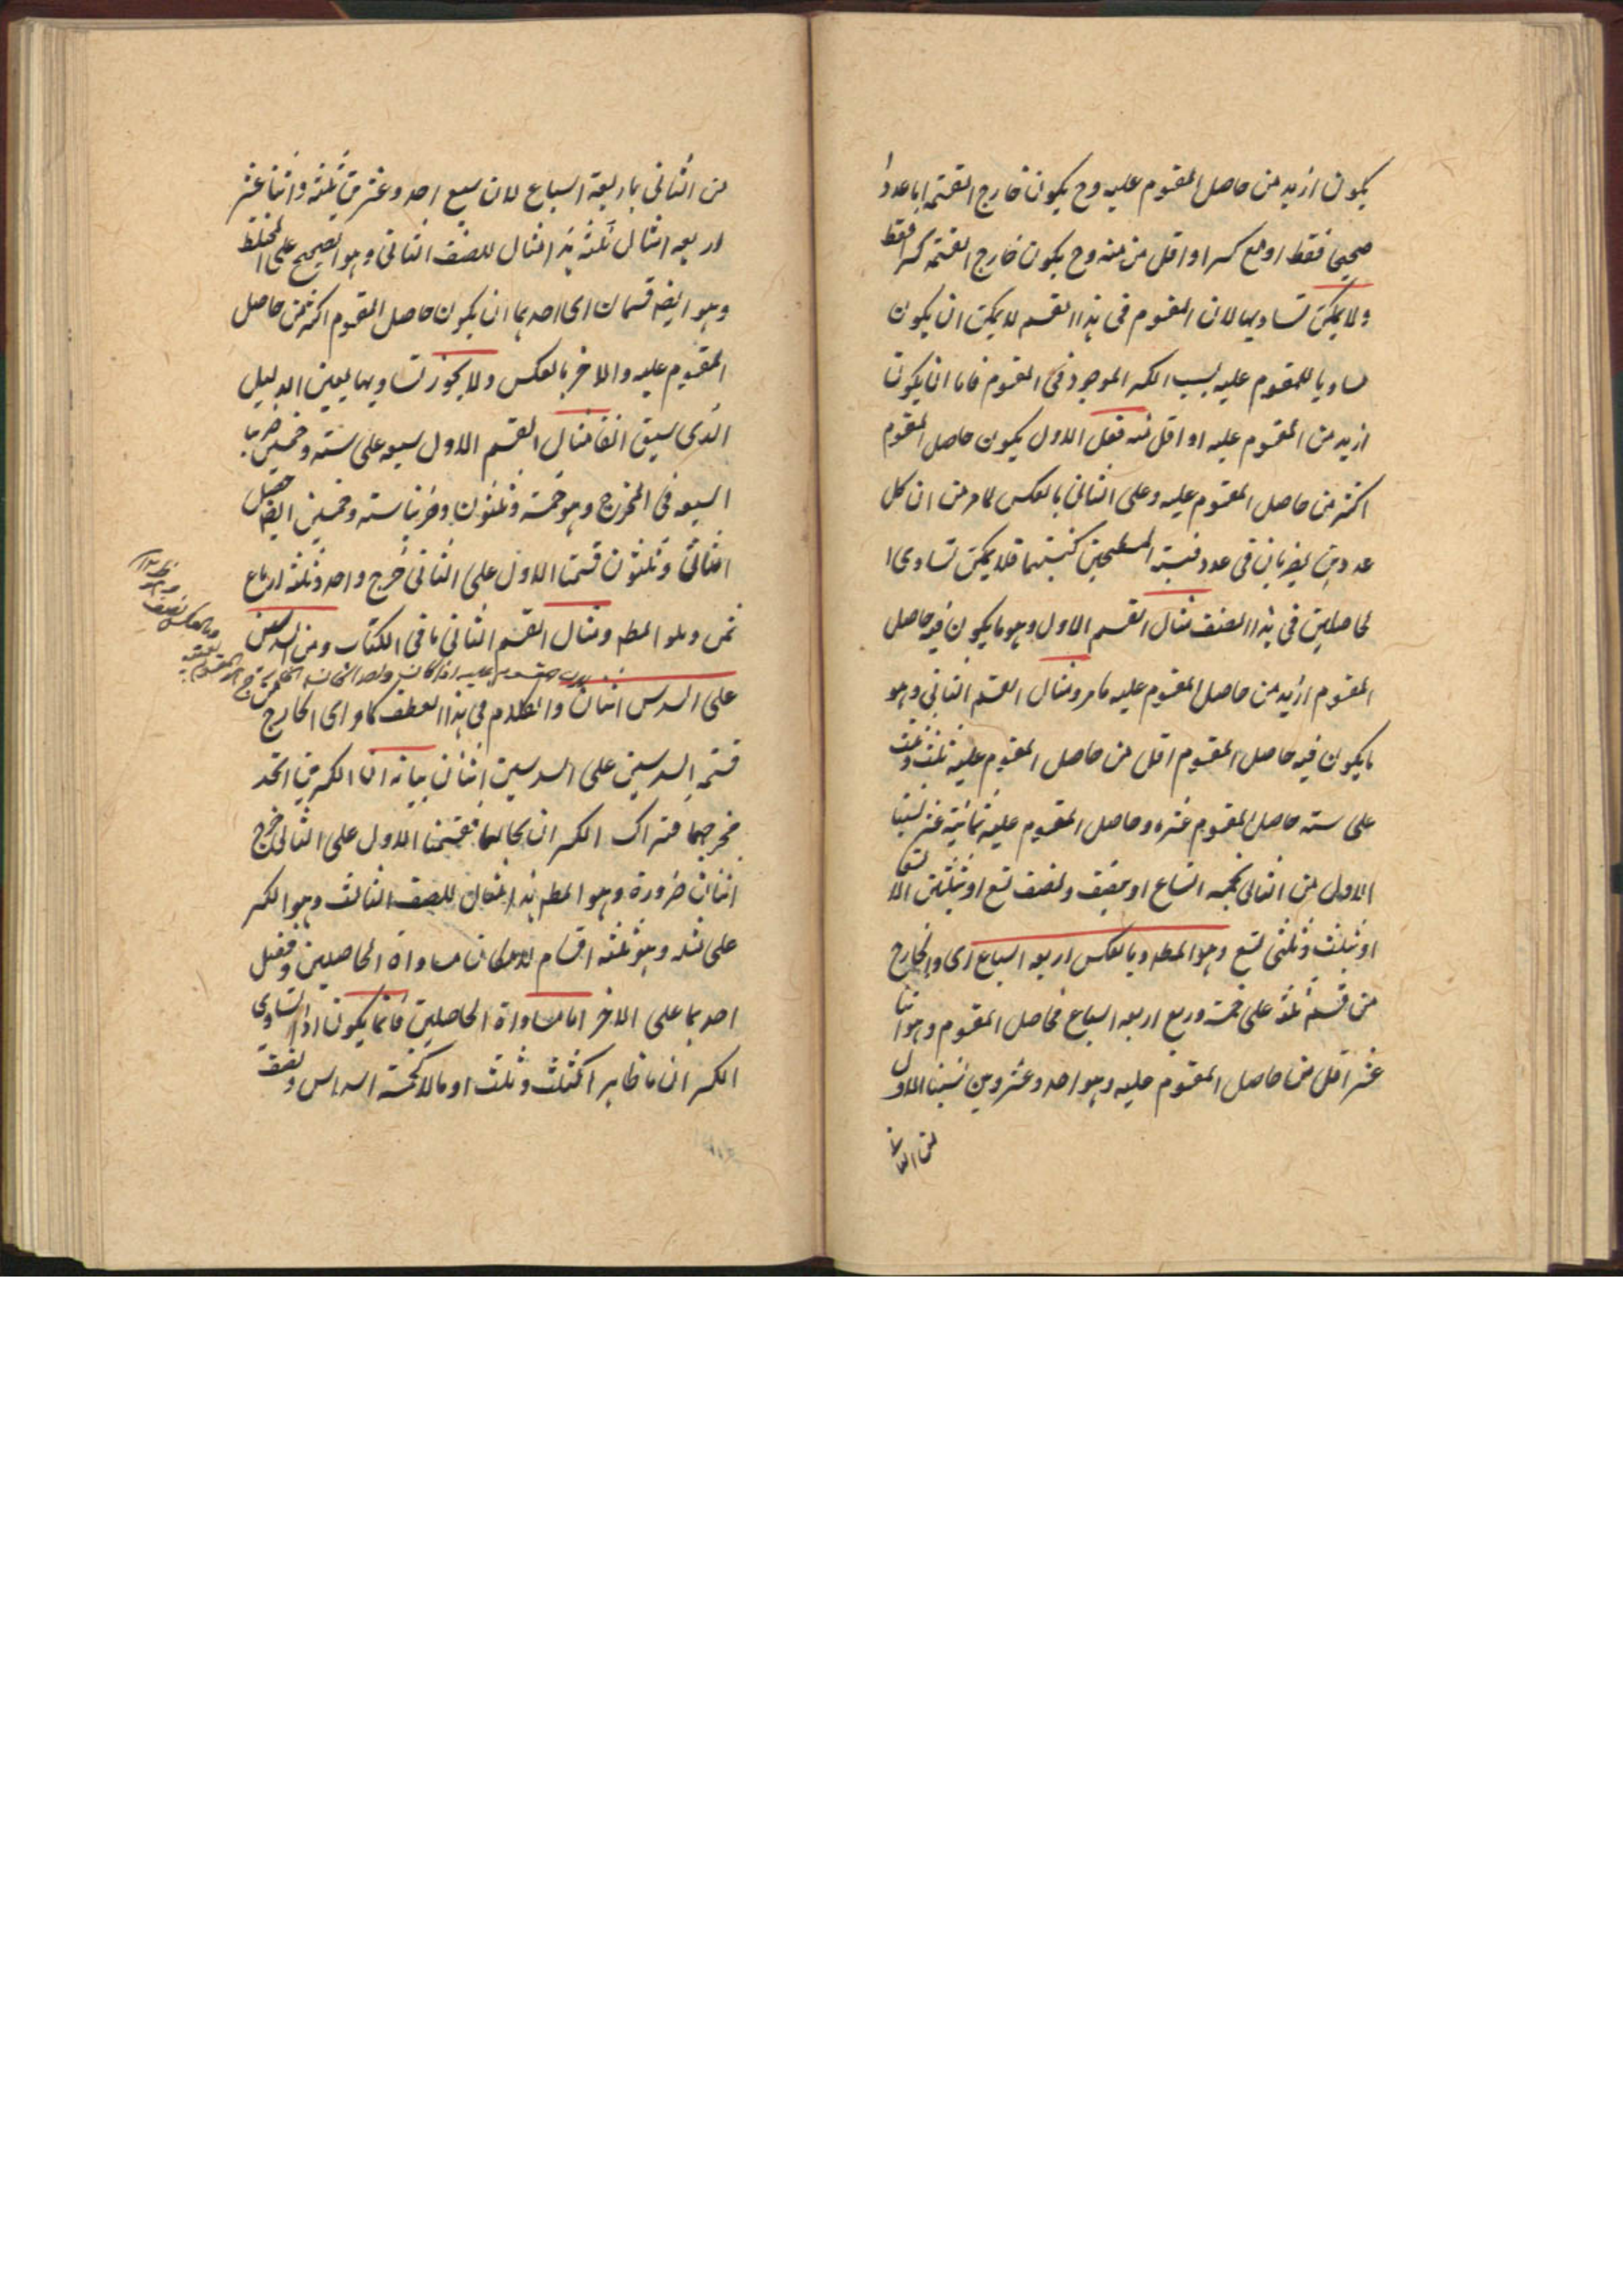 يكون ازيد من حاصل المقسوم عليه وح يكون خارج القسمة اما عددا
صحيحا فقط او مع كسر او اقل من منه وح يكون خارج القسمة كسرا فقط
ولا يمكن تساويهما لان المقسوم فى هذا القسم لا يمكن ان يكون
مساويا للمقسوم عليه بسبب الكسر الموجود فى المقسوم فاما ان يكون
ازيد من المقسوم عليه او اقل منه فعلى الاول يكون حاصل المقسوم
اكثر من حاصل المقسوم عليه وعلى الثانى بالعكس لما مر من ان كل
عددين يضربان فى عدد فنسبة المسطحين كنسبتهما فلا يمكن تساوى ا
لحاصلين فى هذا الصنف مثال القسم الاول وهو ما يكون فيه حاصل
المقسوم ازيد من حاصل المقسوم عليه ما مر ومثال القسم الثانى وهو
ما يكون فيه حاصل المقسوم اقل من حاصل المقسوم عليه ثلثة وثلث
على ستة حاصل المقسوم عشرة وحاصل المقسوم عليه ثمانية عشر نسبنا
الاول من الثانى بخمسة اتساع او بنصف ونصف تسع او بثلثين الا تسعا
او بثلث وثلثى تسع وهو المط وبالعكس اربعة اسباع اى والخارج
من قسمة ثلثة على خمسة وربع اربعة اسباع فحاصل المقسوم وهو اثنا
عشر اقل من حاصل المقسوم عليه وهو احد وعشرون نسبنا الاول
من الثانى
من الثانى باربعة اسباع لان سبع احد وعشرين ثلثة واثنا عشر
اربعة امثال ثلثة هذا مثال للصنف الثانى وهو الصحيح على المختلط
وهو ايضا قسمان اى احدهما ان يكون حاصل المقسوم اكثر من حاصل
المقسوم عليه والاخر بالعكس ولا يجوز تساويهما بعين الدليل
الذى سبق انفا مثال القسم الاول سبعة على ستة وخمسين ضربنا
السبعة فى المخرج وهو خمسة وثلثون وضربنا ستة وخمسين ايضا حصل
اثنان وثلثون قسمنا الاول على الثانى خرج واحد وثلثة ارباع
ثمن وهو المط ومثال القسم الثانى ما فى الكتاب ومن السدسين
على السدس اثنان والكلام فى هذا العطف كما مر اى الخارج
قسمة السدسين على السدسين اثنان بيانه ان الكسرين اتحد
مخرجهما فتراك الكسران بحالهما فقسمنا الاول على الثانى خرج
اثنان ضرورة وهو المط هذا مثال للصنف الثالث وهو الكسر
على مثله وهو ثلثة اقسام لامكان مساواة الحاصلين وفضل
احدهما على الاخر اما مساواة الحاصلين فانما يكون اذا تساوى
الكسران ما ظاهرا كثلث وثلث او مالا كخمسة اسداس ونصف